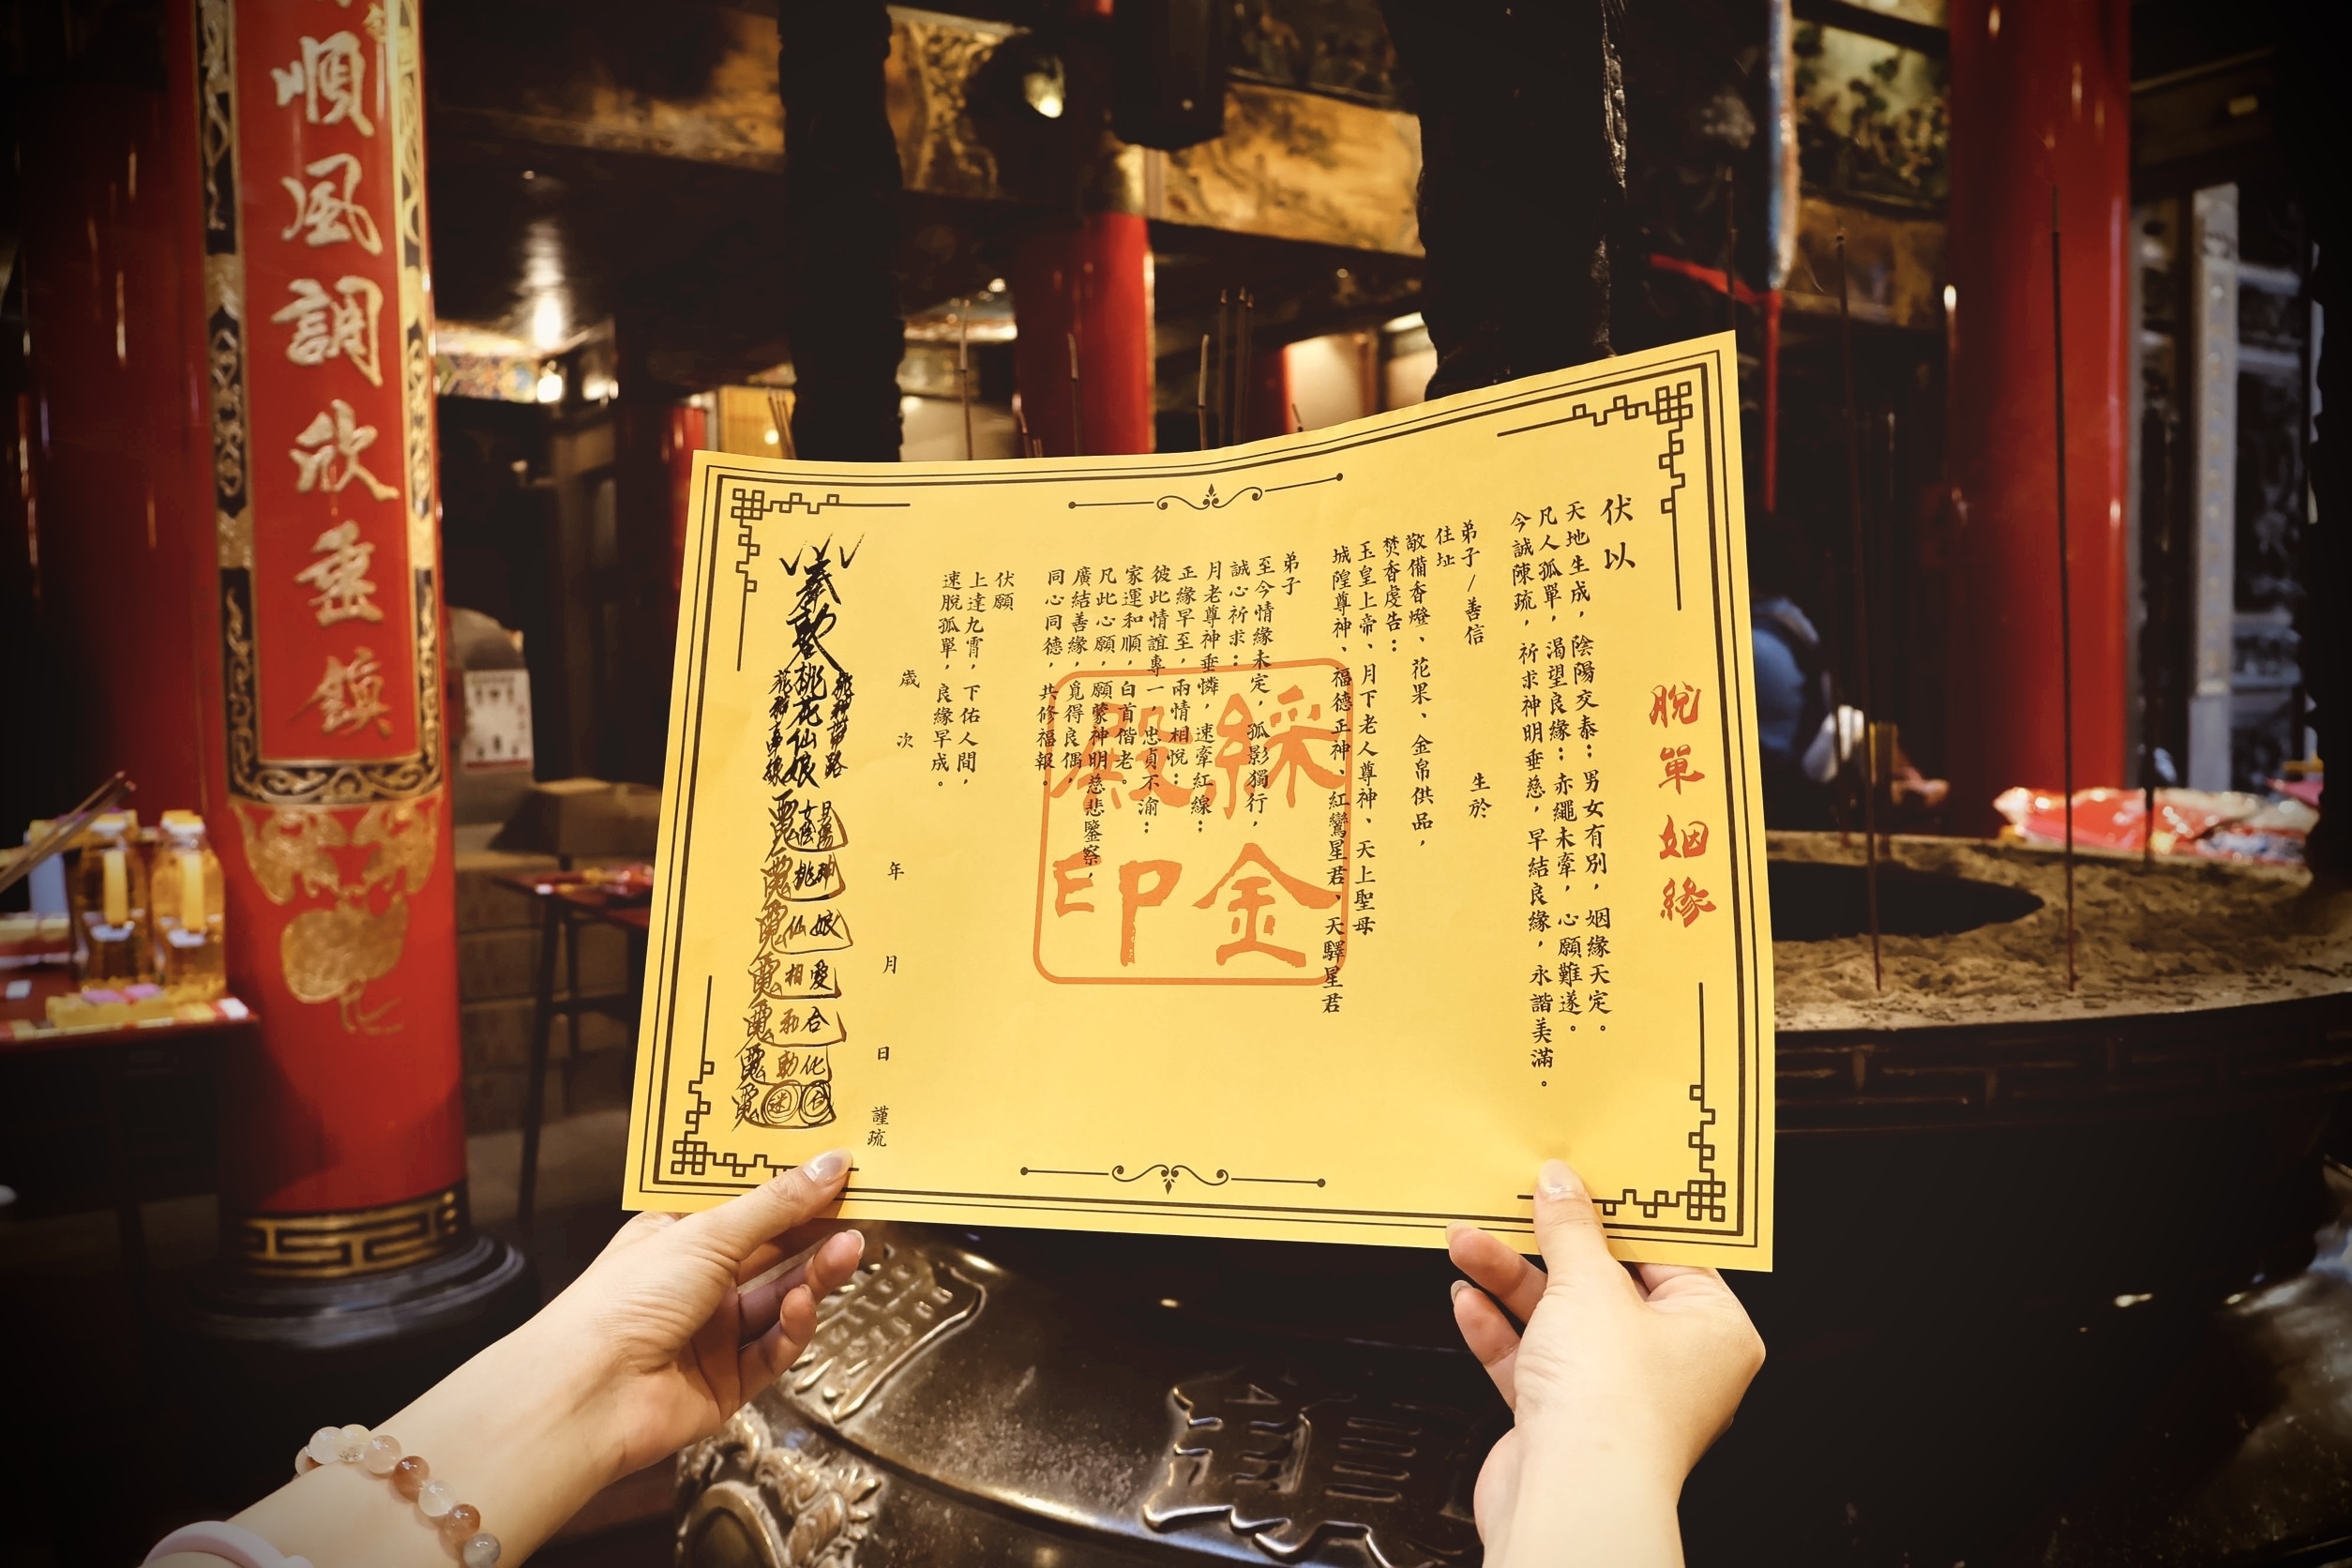 脫單姻緣
伏以
天地生成，陰陽交泰：男女有別，姻緣天定。
凡人孤單，渴望良緣：赤繩未牽，心願難遂。
今誠陳疏，祈求神明垂慈，早結良緣，永諧美滿。
弟子/善信 生於
住址
敬備香燈、花果、金帛供品，
焚香虔告：
玉皇上帝、月下老人尊神、天上聖母
城隍尊神、福德正神、紅鸞星君、天驛星君
弟子
至今情緣未定，孤影獨行，
誠心祈求：
月老尊神垂憐，速牽紅線：
正緣早至，兩情相悅：
彼此情誼專一，忠貞不渝：
家運和順，白首偕老。
凡此心願，願蒙神明慈悲鑒察，
廣結善緣，覓得良偶，
同心同德，共修福報。
伏願
上達九霄，下佑人間，
速脫孤單，良緣早成。
歲次 年 月 日 謹疏
桃花仙娘
仙娘
相愛
和合
助化
綵金殿印
順風調欣垂鎮